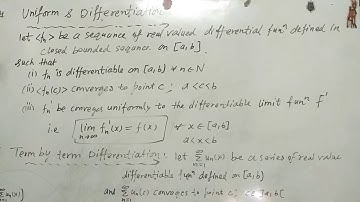 Uniform & Differentiation
let <fn> be a sequance of real valued differential funⁿ defined in
closed bounded sequance on [a,b].
such that
(i) fn is differentiable on [a,b] ∀ n∈N
(ii) <fn(c)> converges to point c; a<c<b
(iii) fn' be converges uniformly to the differentiable limit funⁿ f'
i.e lim n→∞ fn'(x) = f(x) ∀ x∈[a,b]
a<x<b
Term by term Differentiation: let ∞∑n=1 un(x) be a series of real value
differentiable funⁿ defined on [a,b]
and ∞∑n=1 un(c) converges to point c; c∈[a,b]